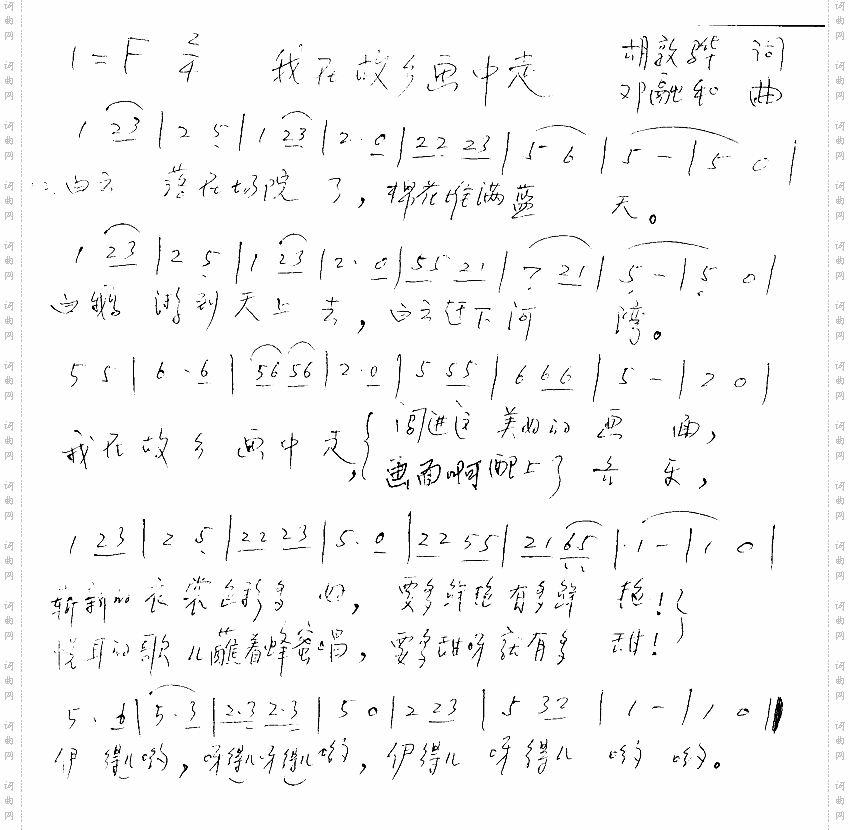 1=F 2/4 我在故乡画中走 胡敦骅 词
邓融和 曲
1 23 | 2 5 | 1 23 | 2· 0 | 22 23 | 5 6 | 5 - | 5 0 |
白云 落在场院 了，棉花堆满蓝 天。
1 23 | 2 5 | 1 23 | 2· 0 | 55 21 | 7 21 | 5 - | 5 0 |
白鹅 游到天上 去，白云迁下河 湾。
5 5 | 6·6 | 56 56 | 2·0 | 5 55 | 6 66 | 5 - | 2 0 |
我在故乡画中走，{ 闯进这美好的画面，
画面啊配上了音乐，
1 23 | 2 5 | 22 23 | 5·0 | 22 55 | 21 65 | 1 - | 1 0 |
崭新的衣裳色彩多 ，要多鲜艳有多鲜 艳！}
悦耳的歌儿蘸着蜂蜜唱，要多甜呀就有多 甜！
5·6 | 5·3 | 2·3 2·3 | 5 0 | 2 23 | 5 32 | 1 - | 1 0 ||
伊得儿哟，呀得儿呀得儿哟，伊得儿 呀得儿 哟 哟。
词曲网